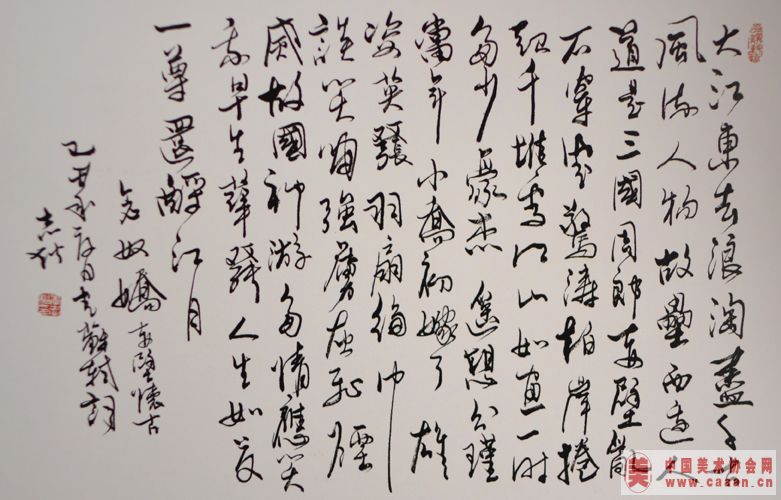 大江東去浪淘盡千古
風流人物故壘西邊人
道是三國周郎赤壁亂
石穿空驚濤拍岸捲
起千堆雪江山如畫一時
多少豪傑遙想公瑾
當年小喬初嫁了雄
姿英發羽扇綸巾
談笑間強虜灰飛煙
滅故國神游多情應笑
我早生華發人生如夢
一尊還酹江月
念奴嬌赤壁懷古
蘇軾詞
中国美术协会网
www.caaan.cn